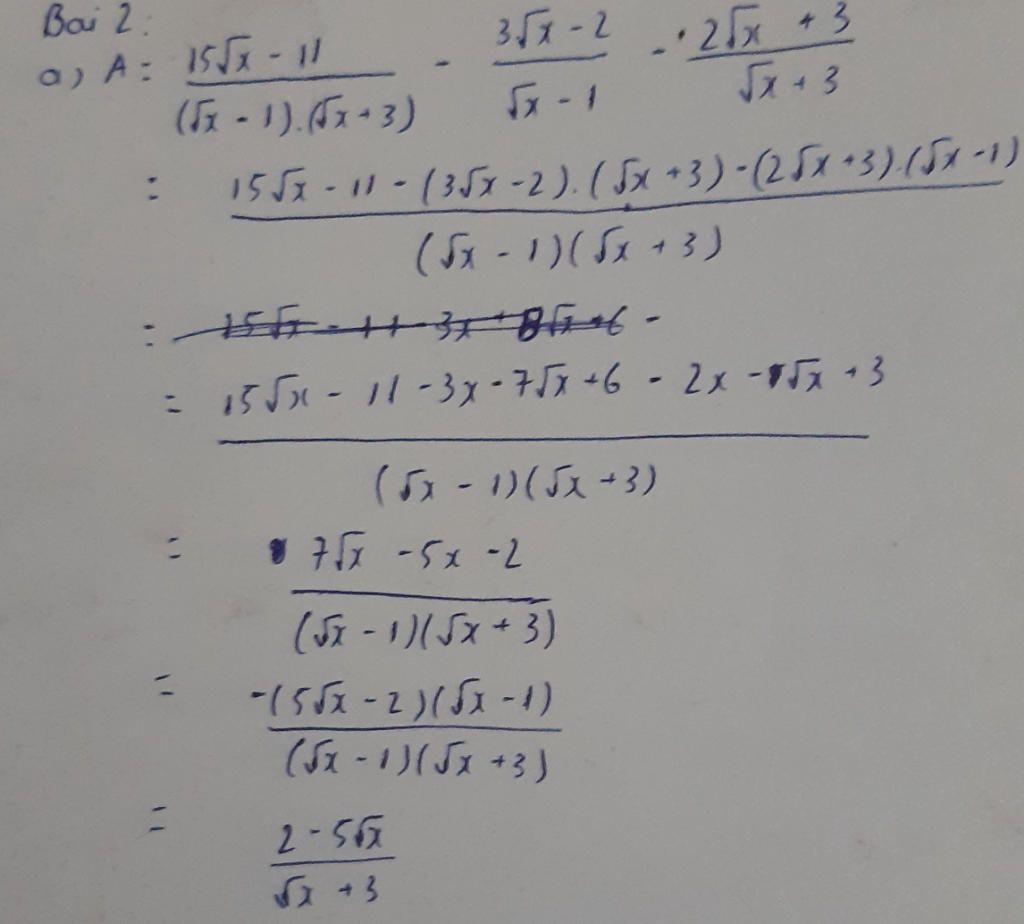 Bài 2:
a) A = (15√x - 11)/((√x - 1).(√x + 3)) - (3√x - 2)/(√x - 1) - (2√x + 3)/(√x + 3)
= (15√x - 11 - (3√x - 2).(√x + 3) - (2√x + 3).(√x - 1))/((√x - 1)(√x + 3))
= 15√x - 11 - 3x + 8√x + 6 -
= (15√x - 11 - 3x - 7√x + 6 - 2x - √x + 3)/((√x - 1)(√x + 3))
= (7√x - 5x - 2)/((√x - 1)(√x + 3))
= (-(5√x - 2)(√x - 1))/((√x - 1)(√x + 3))
= (2 - 5√x)/(√x + 3)